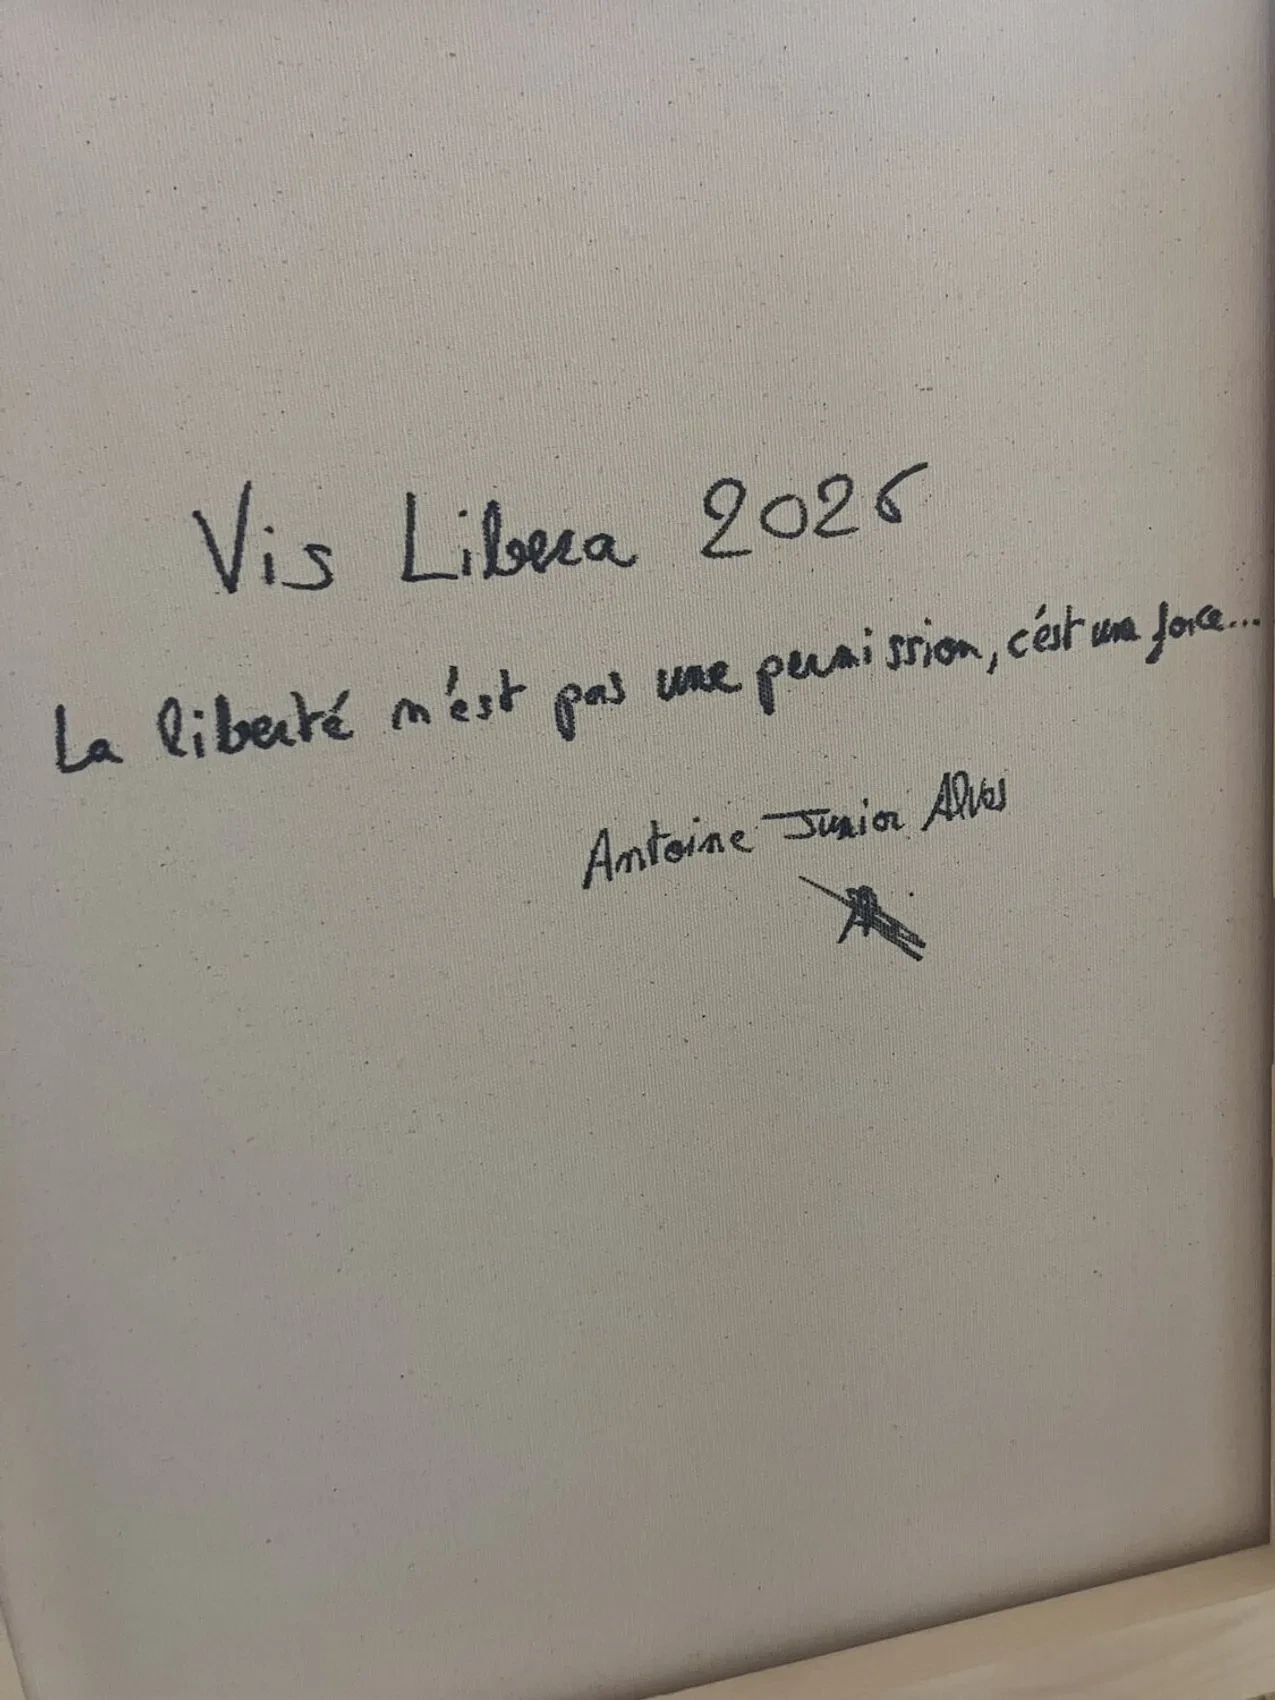 Vis Libera 2026
La liberté n'est pas une permission, c'est une force...
Antoine Junior Alves